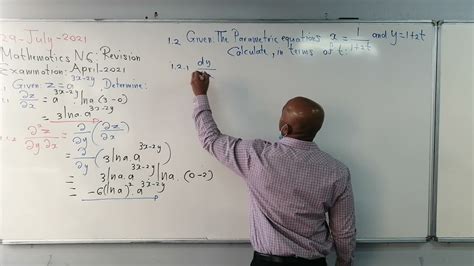 29-July-2021
Mathematics N6: Revision
Examination: April-2021
Given: z = a^{3x-2y} Determine:
∂z/∂x = a^{3x-2y} . ln a (3-0)
= 3 ln a . a^{3x-2y}
1.1.2 ∂²z/∂y.∂x = ∂/∂y (∂z/∂x)
= ∂/∂y (3 ln a . a^{3x-2y})
= 3 ln a . a^{3x-2y} ln a . (0-2)
= -6 (ln a)² . a^{3x-2y}
1.2 Given: The Parametric equations x = 1/1+2t and y = 1+2t
Calculate, in terms of t:
1.2.1 dy